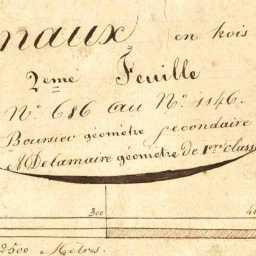 naux en trois
2eme Feuille
N° 686 au N° 1146.
Boursier géomètre secondaire
M Delamaire géomètre de 1ere classe
300
2500 Metres.